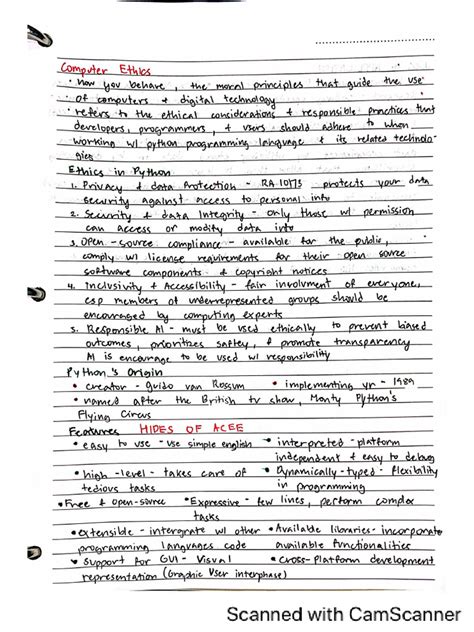 Computer Ethics
• how you behave, the moral principles that guide the use
• of computers & digital technology
• refers to the ethical considerations & responsible practices that
developers, programmers, & users should adhere to when
working w/ python programming language & its related technolo-
gies
Ethics in Python
1. Privacy & data Protection - RA 10173 protects your data
security against access to personal info
2. Security & data Integrity - only those w/ permission
can access or modify data info
3. Open - source compliance - available for the public,
comply w/ license requirements for their open source
software components & copyright notices
4. Inclusivity & Accessibility - fair involvment of everyone,
esp members of underrepresented groups should be
encouraged by computing experts
5. Responsible AI - must be used ethically to prevent biased
outcomes, prioritizes saftey, & promote transparency
AI is encourage to be used w/ responsibility
Python's Origin
• creator - Guido van Rossum • implementing yr - 1989
• named after the British tv show, Monty Python's
Flying Circus
Features HIDES OF ACEE
• easy to use - use simple english • interpreted - platform
independent & easy to debug
• high - level - takes care of • Dynamically - typed - flexibility
tedious tasks in programming
• Free & open-source • Expressive - few lines, perform complex
tasks
• extensible - intergrate w/ other • Available libraries - incorporate
programming languages code available functionalities
• Support for GUI - Visual • cross-platform development
representation (Graphic User interphase)
Scanned with CamScanner